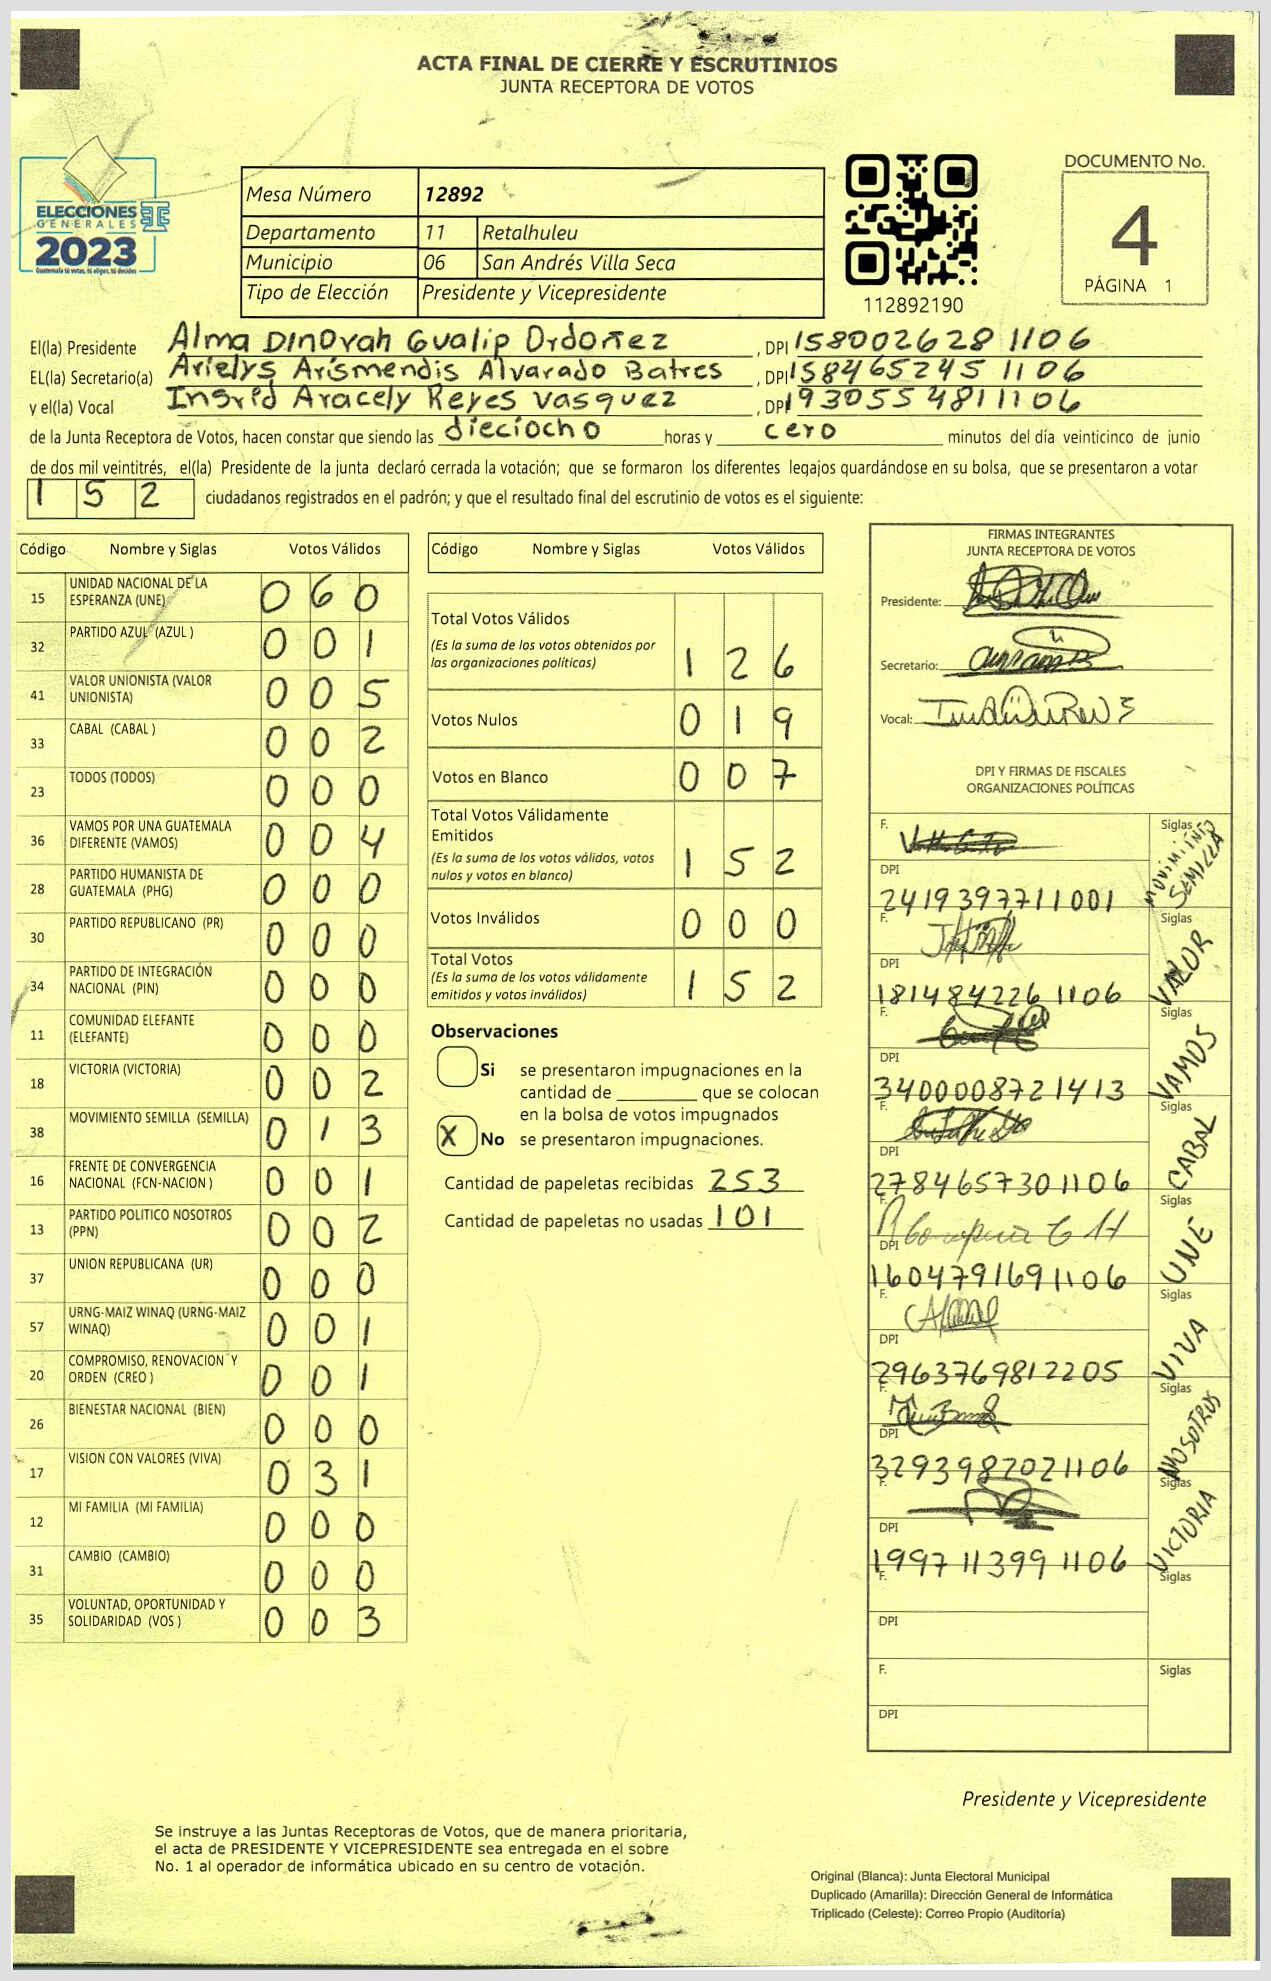 ACTA FINAL DE CIERRE Y ESCRUTINIOS
JUNTA RECEPTORA DE VOTOS
ELECCIONES
GENERALES
2023
Guatemala tú votas, tú eliges, tú decides
Mesa Número 12892
Departamento 11 Retalhuleu
Municipio 06 San Andrés Villa Seca
Tipo de Elección Presidente y Vicepresidente
112892190
DOCUMENTO No.
4
PÁGINA 1
El(la) Presidente Alma Dinorah Gualip Ordoñez , DPI 158002628 1106
EL(la) Secretario(a) Arielys Arismendis Alvarado Batres , DPI 158465245 1106
y el(la) Vocal Ingrid Aracely Reyes Vasquez , DPI 193055481 1106
de la Junta Receptora de Votos, hacen constar que siendo las dieciocho horas y cero minutos del día veinticinco de junio
de dos mil veintitrés, el(la) Presidente de la junta declaró cerrada la votación; que se formaron los diferentes legajos guardándose en su bolsa, que se presentaron a votar
1 5 2 ciudadanos registrados en el padrón; y que el resultado final del escrutinio de votos es el siguiente:
Código Nombre y Siglas Votos Válidos
15 UNIDAD NACIONAL DE LA ESPERANZA (UNE) 0 6 0
32 PARTIDO AZUL (AZUL ) 0 0 1
41 VALOR UNIONISTA (VALOR UNIONISTA) 0 0 5
33 CABAL (CABAL ) 0 0 2
23 TODOS (TODOS) 0 0 0
36 VAMOS POR UNA GUATEMALA DIFERENTE (VAMOS) 0 0 4
28 PARTIDO HUMANISTA DE GUATEMALA (PHG) 0 0 0
30 PARTIDO REPUBLICANO (PR) 0 0 0
34 PARTIDO DE INTEGRACIÓN NACIONAL (PIN) 0 0 0
11 COMUNIDAD ELEFANTE (ELEFANTE) 0 0 0
18 VICTORIA (VICTORIA) 0 0 2
38 MOVIMIENTO SEMILLA (SEMILLA) 0 1 3
16 FRENTE DE CONVERGENCIA NACIONAL (FCN-NACION ) 0 0 1
13 PARTIDO POLITICO NOSOTROS (PPN) 0 0 2
37 UNION REPUBLICANA (UR) 0 0 0
57 URNG-MAIZ WINAQ (URNG-MAIZ WINAQ) 0 0 1
20 COMPROMISO, RENOVACION Y ORDEN (CREO ) 0 0 1
26 BIENESTAR NACIONAL (BIEN) 0 0 0
17 VISION CON VALORES (VIVA) 0 3 1
12 MI FAMILIA (MI FAMILIA) 0 0 0
31 CAMBIO (CAMBIO) 0 0 0
35 VOLUNTAD, OPORTUNIDAD Y SOLIDARIDAD (VOS ) 0 0 3
Código Nombre y Siglas Votos Válidos
Total Votos Válidos
(Es la suma de los votos obtenidos por las organizaciones políticas) 1 2 6
Votos Nulos 0 1 9
Votos en Blanco 0 0 7
Total Votos Válidamente Emitidos
(Es la suma de los votos válidos, votos nulos y votos en blanco) 1 5 2
Votos Inválidos 0 0 0
Total Votos
(Es la suma de los votos válidamente emitidos y votos inválidos) 1 5 2
Observaciones
Si se presentaron impugnaciones en la
cantidad de ________ que se colocan
en la bolsa de votos impugnados
X No se presentaron impugnaciones.
Cantidad de papeletas recibidas 253
Cantidad de papeletas no usadas 101
FIRMAS INTEGRANTES
JUNTA RECEPTORA DE VOTOS
Presidente:
Secretario:
Vocal:
DPI Y FIRMAS DE FISCALES
ORGANIZACIONES POLÍTICAS
F. Siglas MOVIMIENTO SEMILLA
DPI
2419397711001
F. Siglas VALOR
DPI
181484226 1106
F. Siglas VAMOS
DPI
3400008721413
F. Siglas CABAL
DPI
2784657301106
F. Siglas UNE
DPI
1604791691106
F. Siglas VIVA
DPI
2963769812205
F. Siglas NOSOTROS
DPI
3293982021106
F. Siglas VICTORIA
DPI
1997113991106
F. Siglas
DPI
F. Siglas
DPI
Presidente y Vicepresidente
Se instruye a las Juntas Receptoras de Votos, que de manera prioritaria,
el acta de PRESIDENTE Y VICEPRESIDENTE sea entregada en el sobre
No. 1 al operador de informática ubicado en su centro de votación.
Original (Blanca): Junta Electoral Municipal
Duplicado (Amarilla): Dirección General de Informática
Triplicado (Celeste): Correo Propio (Auditoría)